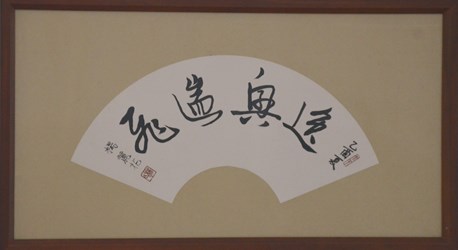 乙酉夏
逸興遄飛